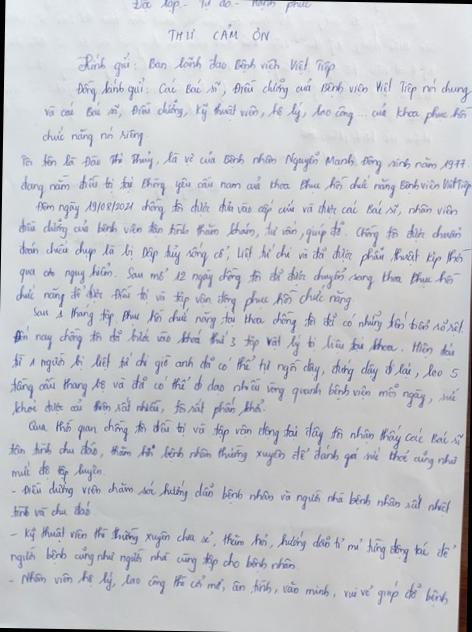 Độc lập - Tự do - Hạnh phúc
THƯ CẢM ƠN
Kính gửi: Ban lãnh đạo Bệnh viện Việt Tiệp
Đồng kính gửi: Các Bác sĩ, Điều dưỡng của Bệnh viện Việt Tiệp nói chung
và các Bác sĩ, Điều dưỡng, Kỹ thuật viên, hộ lý, lao công ... của Khoa phục hồi
chức năng nói riêng.
Tôi tên là Đào Thị Thủy, là vợ của Bệnh nhân Nguyễn Mạnh Đông sinh năm 1977
đang nằm điều trị tại Phòng yêu cầu nam của khoa Phục hồi chức năng Bệnh viện Việt Tiệp
Đêm ngày 19/08/2021 chồng tôi được đưa vào cấp cứu và được các Bác sĩ, nhân viên
điều dưỡng của bệnh viện tận tình thăm khám, tư vấn, giúp đỡ. Chồng tôi được chuẩn
đoán chiếu chụp là bị Dập tủy sống cổ, Liệt tứ chi và đã được phẫu thuật kịp thời
qua cơn nguy hiểm. Sau mổ 12 ngày chồng tôi đã được chuyển sang khoa Phục hồi
chức năng để được Điều trị và tập vận động phục hồi chức năng.
Sau 1 tháng tập Phục hồi chức năng tại khoa chồng tôi đã có những tiến triển rõ rệt
Đến nay chồng tôi đã bước vào khoá thứ 3 tập vật lý trị liệu tại khoa. Hiện tại
từ 1 người bị liệt tứ chi giờ anh đã có thể tự ngồi dậy, đứng dậy đi lại, leo 5
tầng cầu thang bộ và đã có thể đi dạo nhiều vòng quanh bệnh viện mỗi ngày, sức
khoẻ được cải thiện rất nhiều, tôi rất phấn khởi.
Qua thời gian chồng tôi điều trị và tập vận động tại đây tôi nhận thấy các Bác sĩ
tận tình chu đáo, thăm hỏi bệnh nhân thường xuyên để đánh giá sức khoẻ cũng như
mức độ tập luyện.
- Điều dưỡng viên chăm sóc hướng dẫn bệnh nhân và người nhà bệnh nhân rất nhiệt
tình và chu đáo
- Kỹ thuật viên thì thường xuyên chia sẻ, thăm hỏi, hướng dẫn tỉ mỉ từng động tác để
người bệnh cũng như người nhà cùng tập cho bệnh nhân
- Nhân viên hộ lý, lao công thì cởi mở, ân tình, văn minh, vui vẻ giúp đỡ bệnh